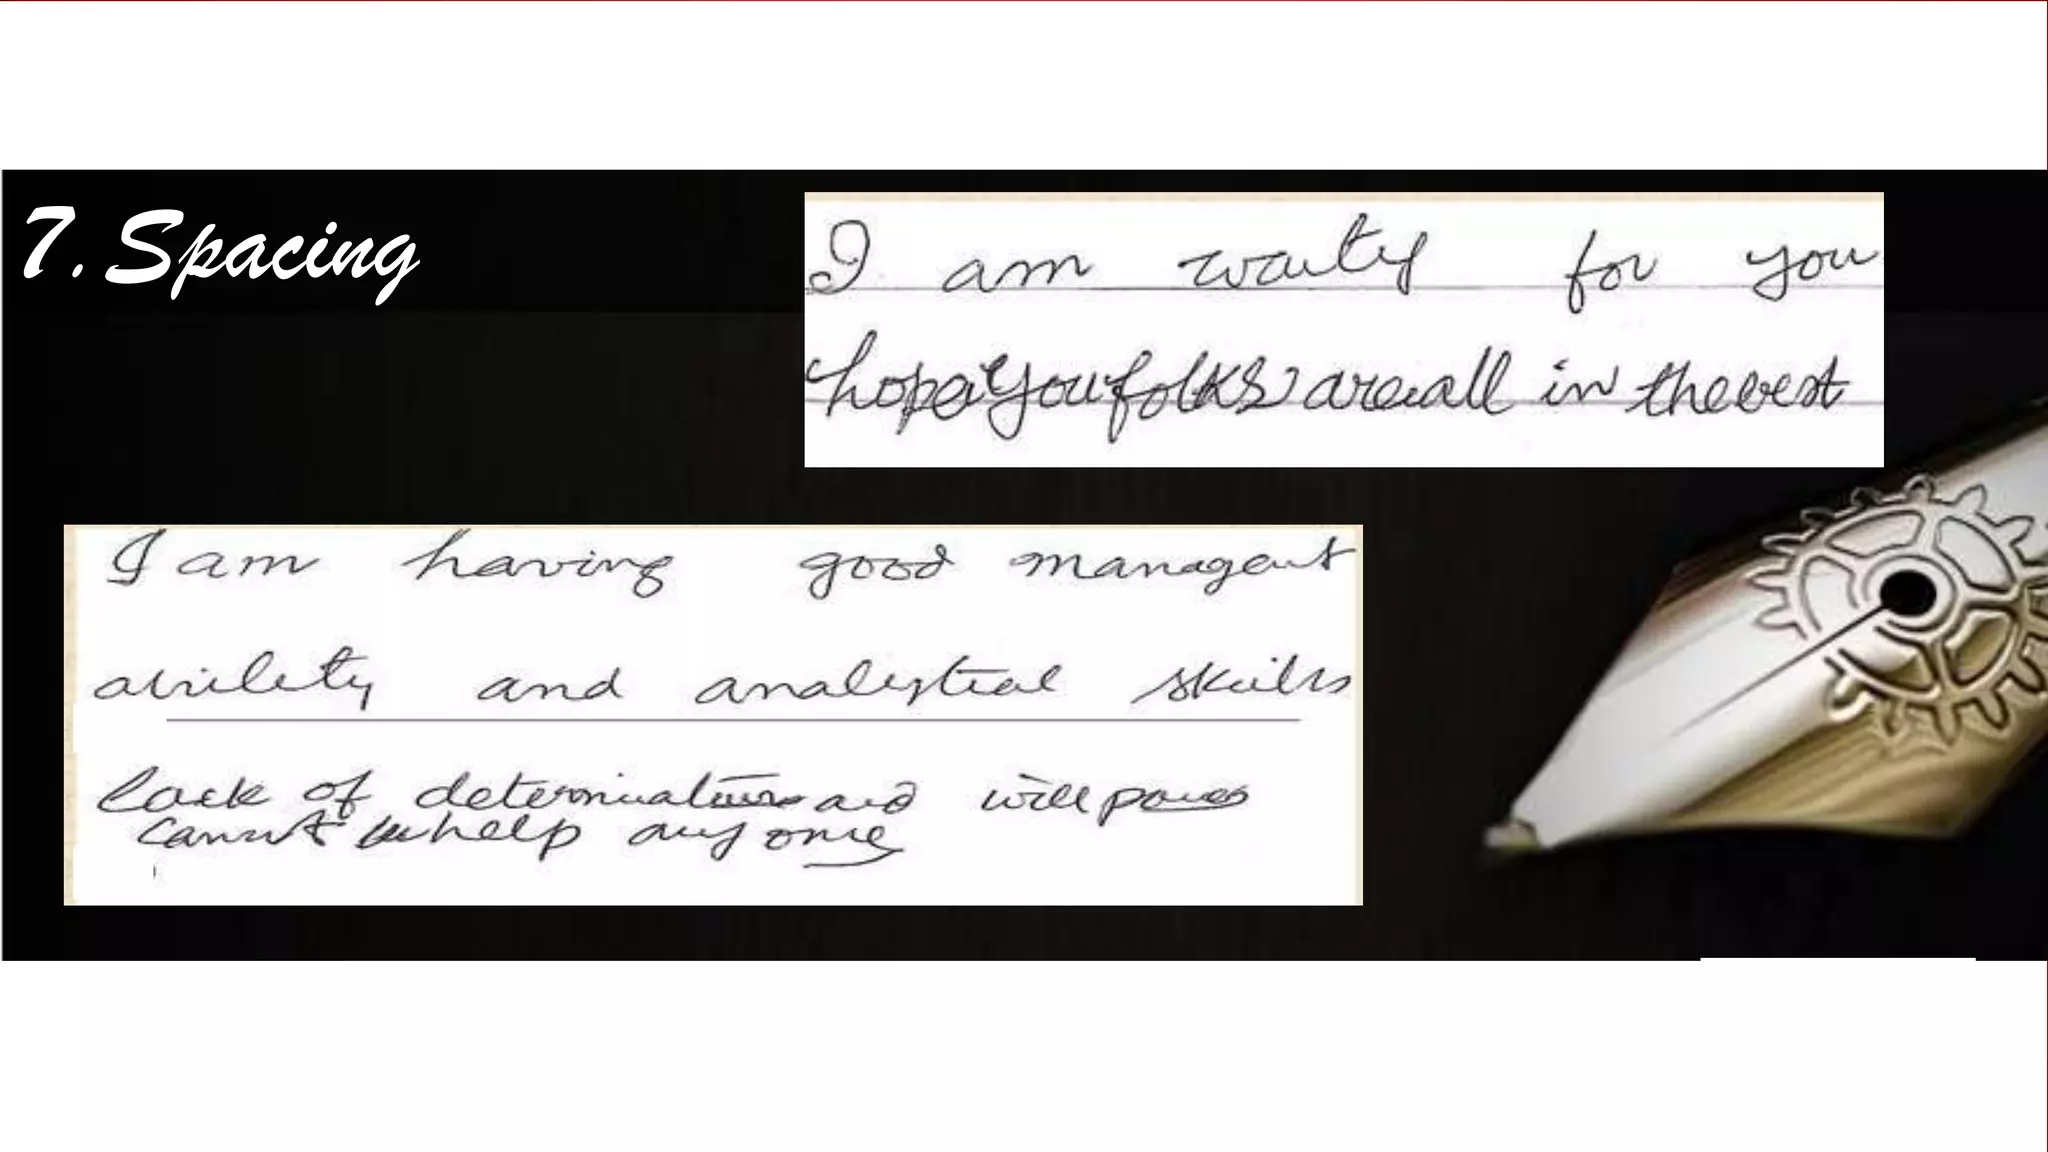 7. Spacing
I am waity for you
hope you folks are all in the best
I am having good managent
ability and analytical skills
lack of determination and will power
cannot help any one